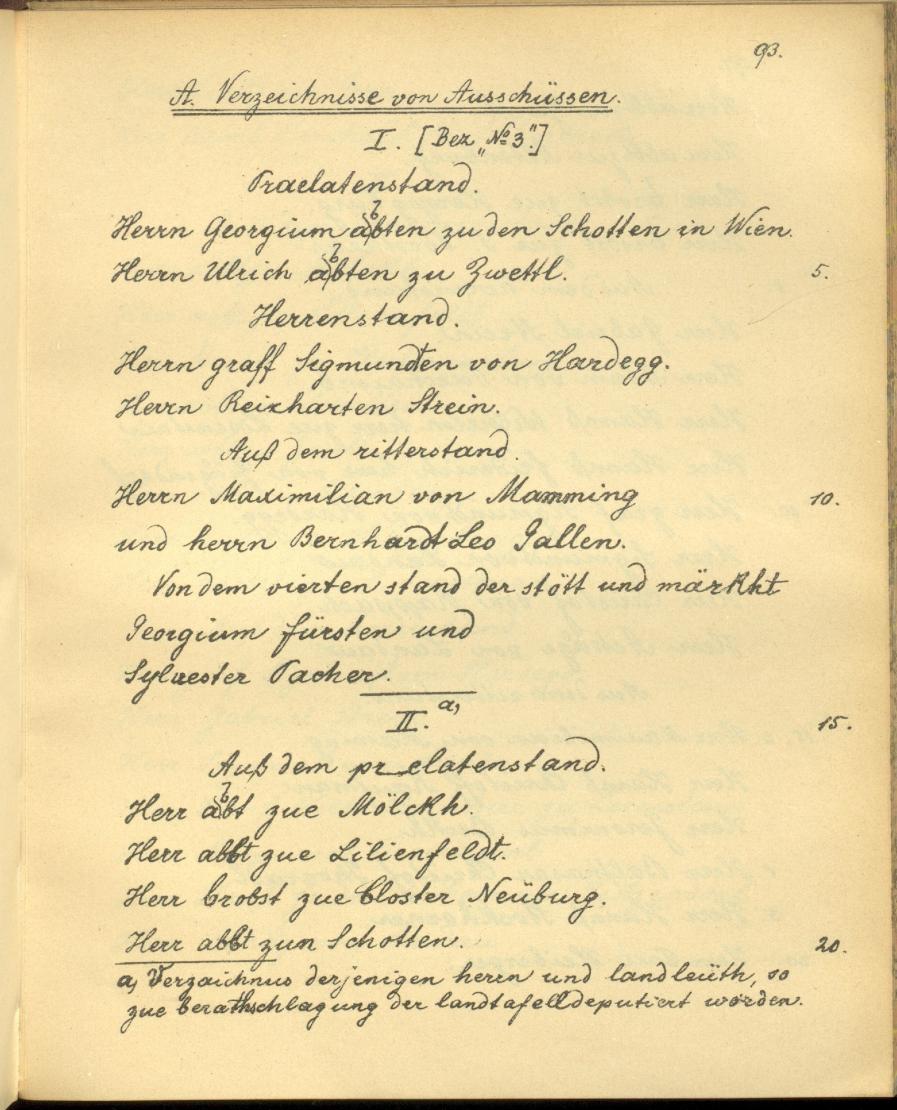 93.
A. Verzeichnisse von Ausschüssen.
I. [Bez. „No 3".]
Praelatenstand.
Herrn Georgium abbten zu den Schotten in Wien.
Herrn Ulrich abbten zu Zwettl. 5.
Herrenstand.
Herrn graff Sigmundten von Hardegg.
Herrn Reicharten Strein.
Auß dem ritterstand.
Herrn Maximilian von Mamming 10.
und herrn Bernhardt Leo Gallen.
Von dem vierten stand der stött und märkht
Georgium fürsten und
Sylvester Pacher.
II. a) 15.
Auß dem prelatenstand.
Herr abbt zue Mölckh.
Herr abbt zue Lilienfeldt.
Herr brobst zue Closter Neüburg.
Herr abbt zun Schotten. 20.
a) Verzaichnus derjenigen herrn und landleüth, so
zue berathschlagung der landtafell deputiert worden.